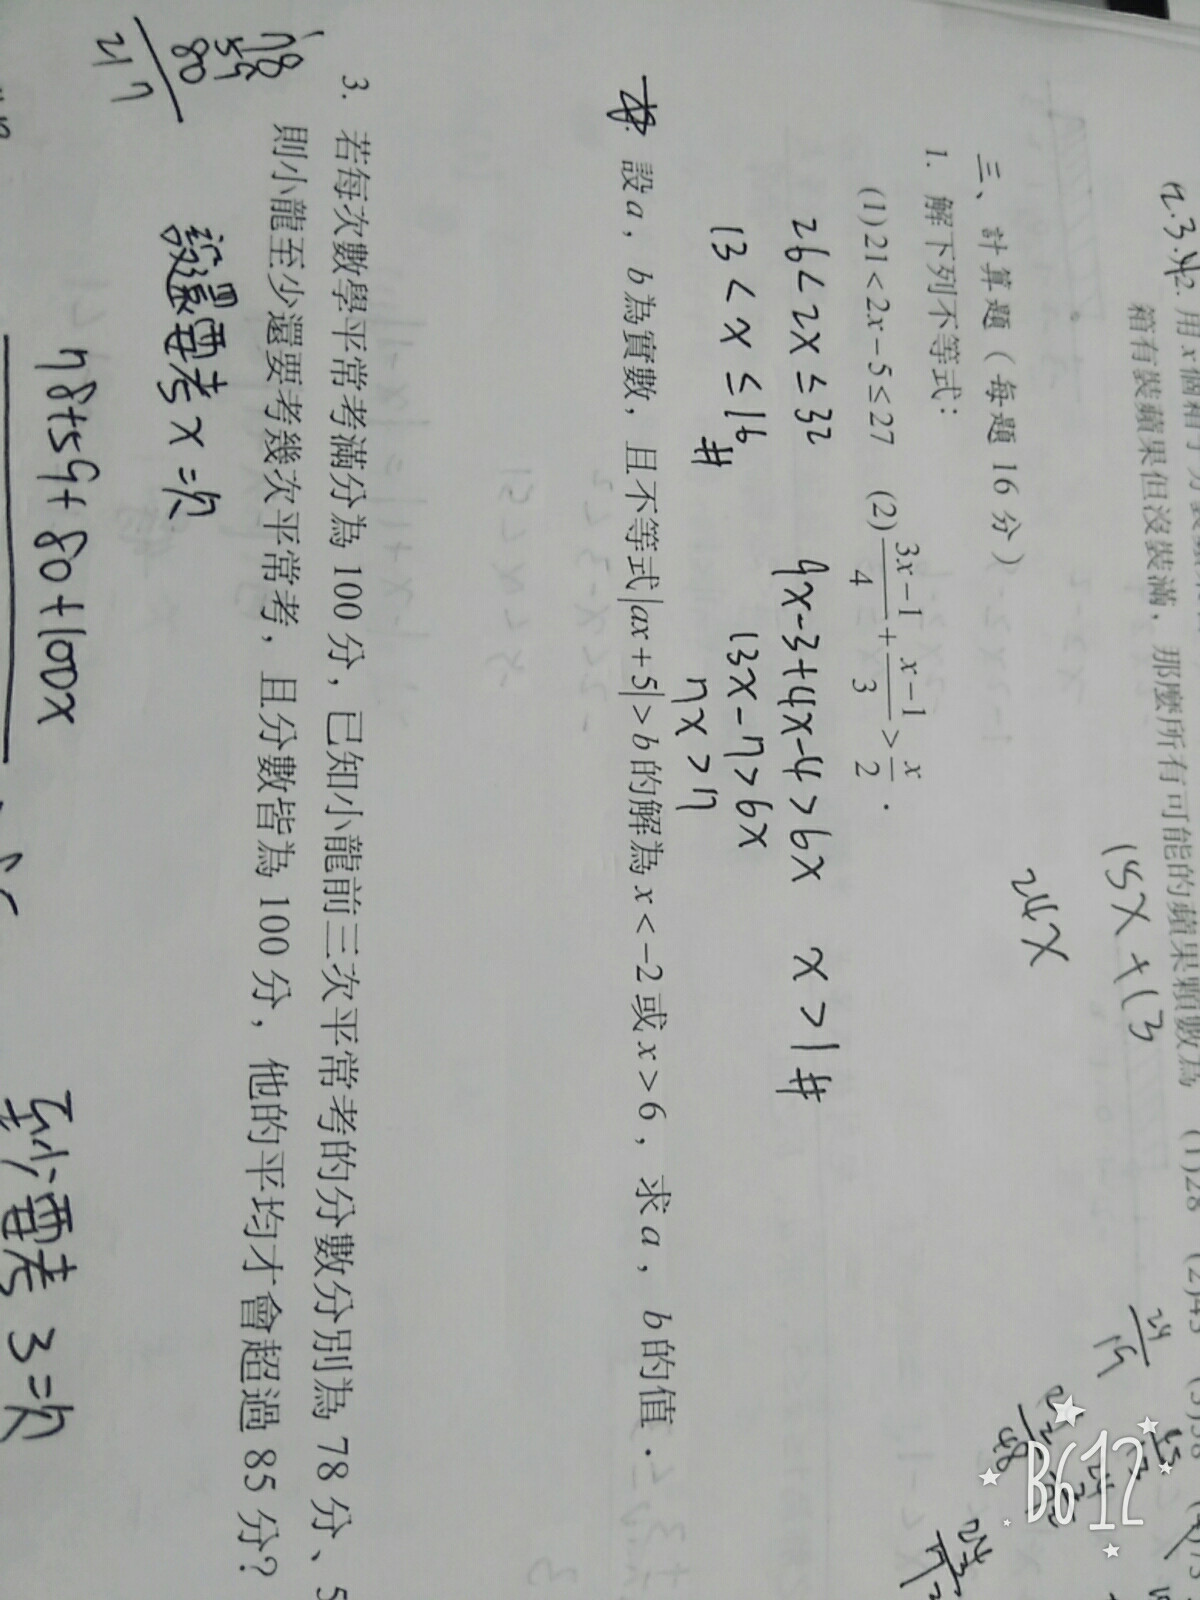 2.3.4
2. 用x個箱子
箱有裝蘋果但沒裝滿，那麼所有可能的蘋果顆數為 (1)28 (2)43 (3)58
15x+13
24x
24
15
三、計算題（每題16分）
1. 解下列不等式：
(1)21<2x-5≤27 (2)3x-1/4+x-1/3>x/2．
26<2x≤32
13<x≤16
#
9x-3+4x-4>6x x>1#
13x-7>6x
7x>7
設a，b為實數，且不等式|ax+5|>b的解為x<-2或x>6，求a，b的值．
3. 若每次數學平常考滿分為100分，已知小龍前三次平常考的分數分別為78分、5
則小龍至少還要考幾次平常考，且分數皆為100分，他的平均才會超過85分？
78
59
80
217
設還要考x次
78+59+80+100x
要考3次
B612